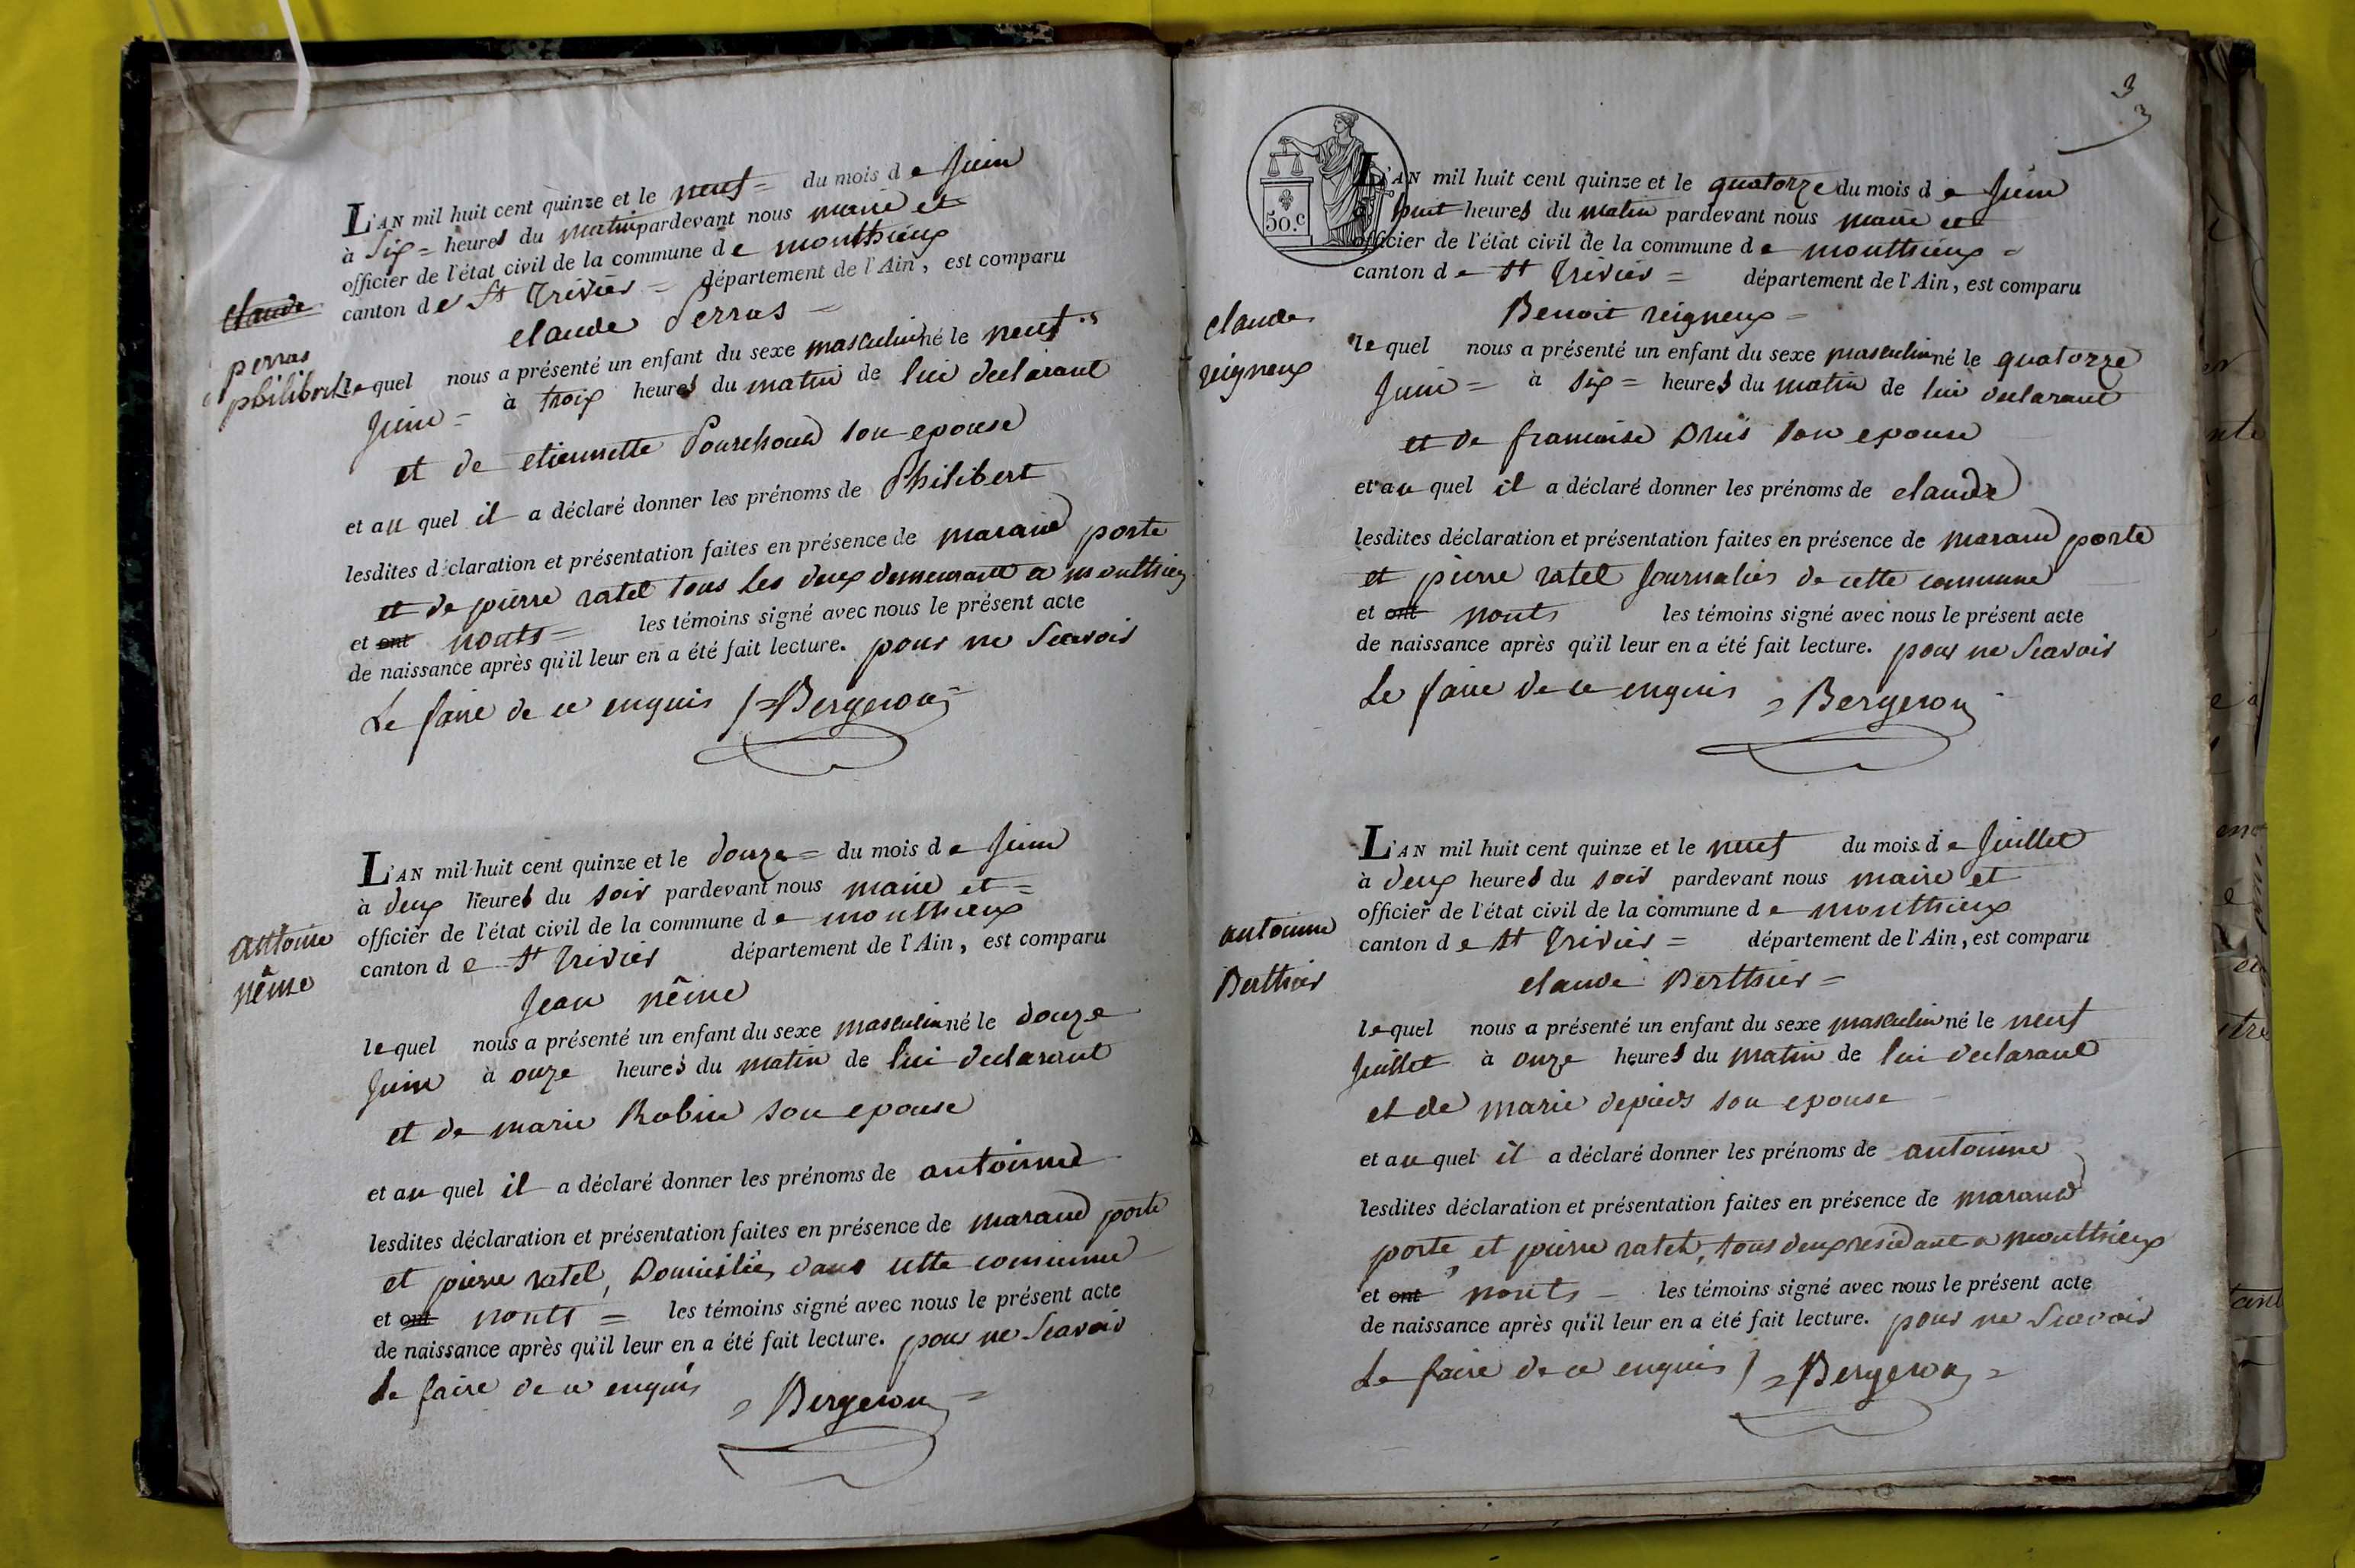 L'AN mil huit cent quinze et le neuf = du mois de Juin
à Six = heures du matin pardevant nous maire et
officier de l'état civil de la commune de monthieux
canton de St Trivier = département de l'Ain, est comparu
claude perras =
claude
perras
philibert
lequel nous a présenté un enfant du sexe masculin né le neuf
Juin = à troix heures du matin de lui declarant
et de etiennette Pourchoud son epouse
et au quel il a déclaré donner les prénoms de Philibert
lesdites déclaration et présentation faites en présence de maraud porte
et de pierre ratel tous les deux demeurant a monthieux
et ont nonts = les témoins signé avec nous le présent acte
de naissance après qu'il leur en a été fait lecture. pour ne Scavoir
Le faire de ce enquis = Bergeron =
L'AN mil huit cent quinze et le douze = du mois de Juin
à deux heures du soir pardevant nous maire et =
officier de l'état civil de la commune de monthieux
canton de St Trivier département de l'Ain, est comparu
antoine
nême
Jean nême
lequel nous a présenté un enfant du sexe masculin né le douze
Juin à onze heures du matin de lui declarant
et de marie Robin son epouse
et au quel il a déclaré donner les prénoms de antoinne
lesdites déclaration et présentation faites en présence de maraud porte
et pierre ratel, Domiciliés dans cette commune
et ont nonts = les témoins signé avec nous le présent acte
de naissance après qu'il leur en a été fait lecture. pour ne Scavoir
le faire de ce enquis = Bergeron =
3
3
50.c
L'AN mil huit cent quinze et le quatorze du mois de Juin
à huit heures du matin pardevant nous maire et
officier de l'état civil de la commune de monthieux =
canton de St Trivier = département de l'Ain, est comparu
Benoit reigneux =
claude
reigneux
lequel nous a présenté un enfant du sexe masculin né le quatorze
Juin = à six = heures du matin de lui declarant
et de francoise son epouse
et au quel il a déclaré donner les prénoms de claude
lesdites déclaration et présentation faites en présence de maraud porte
et pierre ratel Journalier de cette commune
et ont nonts les témoins signé avec nous le présent acte
de naissance après qu'il leur en a été fait lecture. pour ne Scavoir
Le faire de ce enquis = Bergeron
L'AN mil huit cent quinze et le neuf du mois de Juillet
à deux heures du soir pardevant nous maire et
officier de l'état civil de la commune de monthieux
canton de St Trivier = département de l'Ain, est comparu
antoinne
Berthier
claude Berthier =
lequel nous a présenté un enfant du sexe masculin né le neuf
Juillet à onze heures du matin de lui declarant
et de marie depieds son epouse
et au quel il a déclaré donner les prénoms de antoinne
lesdites déclaration et présentation faites en présence de maraud
porte, et pierre ratel, tous deux residant a monthieux
et ont nonts = les témoins signé avec nous le présent acte
de naissance après qu'il leur en a été fait lecture. pour ne Scavoir
Le faire de ce enquis = Bergeron =